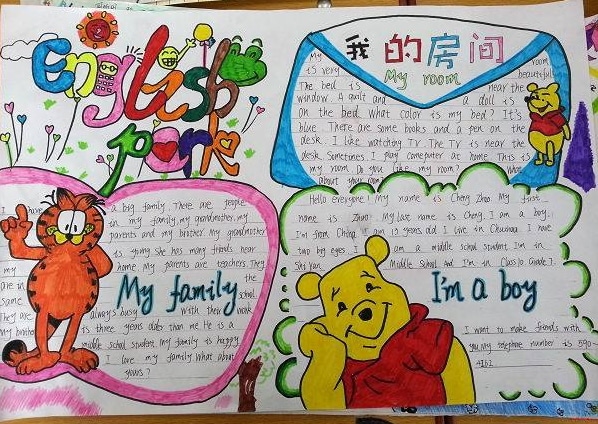 English
park
我的房间
My room
My room
is very beautiful
The bed is near the
window. A quilt and a doll is
on the bed. What color is my bed? It's
blue. There are some books and a pen on the
desk. I like watching TV. The TV is near the
desk. Sometimes I play computer at home. This is
my room. Do you like my room? What
about your room
I have a big family. There are people
in my family, my grandmother, my
parents and my brother. My grandmother
is young. She has many friends near
my home. My parents are teachers. They
are in the
same school
They are always busy with their work
My brother is three years older than me. He is a
middle school student. My family is happy
I love my family. What about
yours?
My family
Hello everyone! My name is Cheng Zhao My first
name is Zhao. My last name is Cheng. I am a boy.
I'm from China. I am 13 years old I live in I have
two big eyes I am a middle school student. I'm in
Shi yan Middle School And I'm in Class 10 Grade 7.
I'm a boy
I want to make friends with
you. My telephone number is 590-
4161